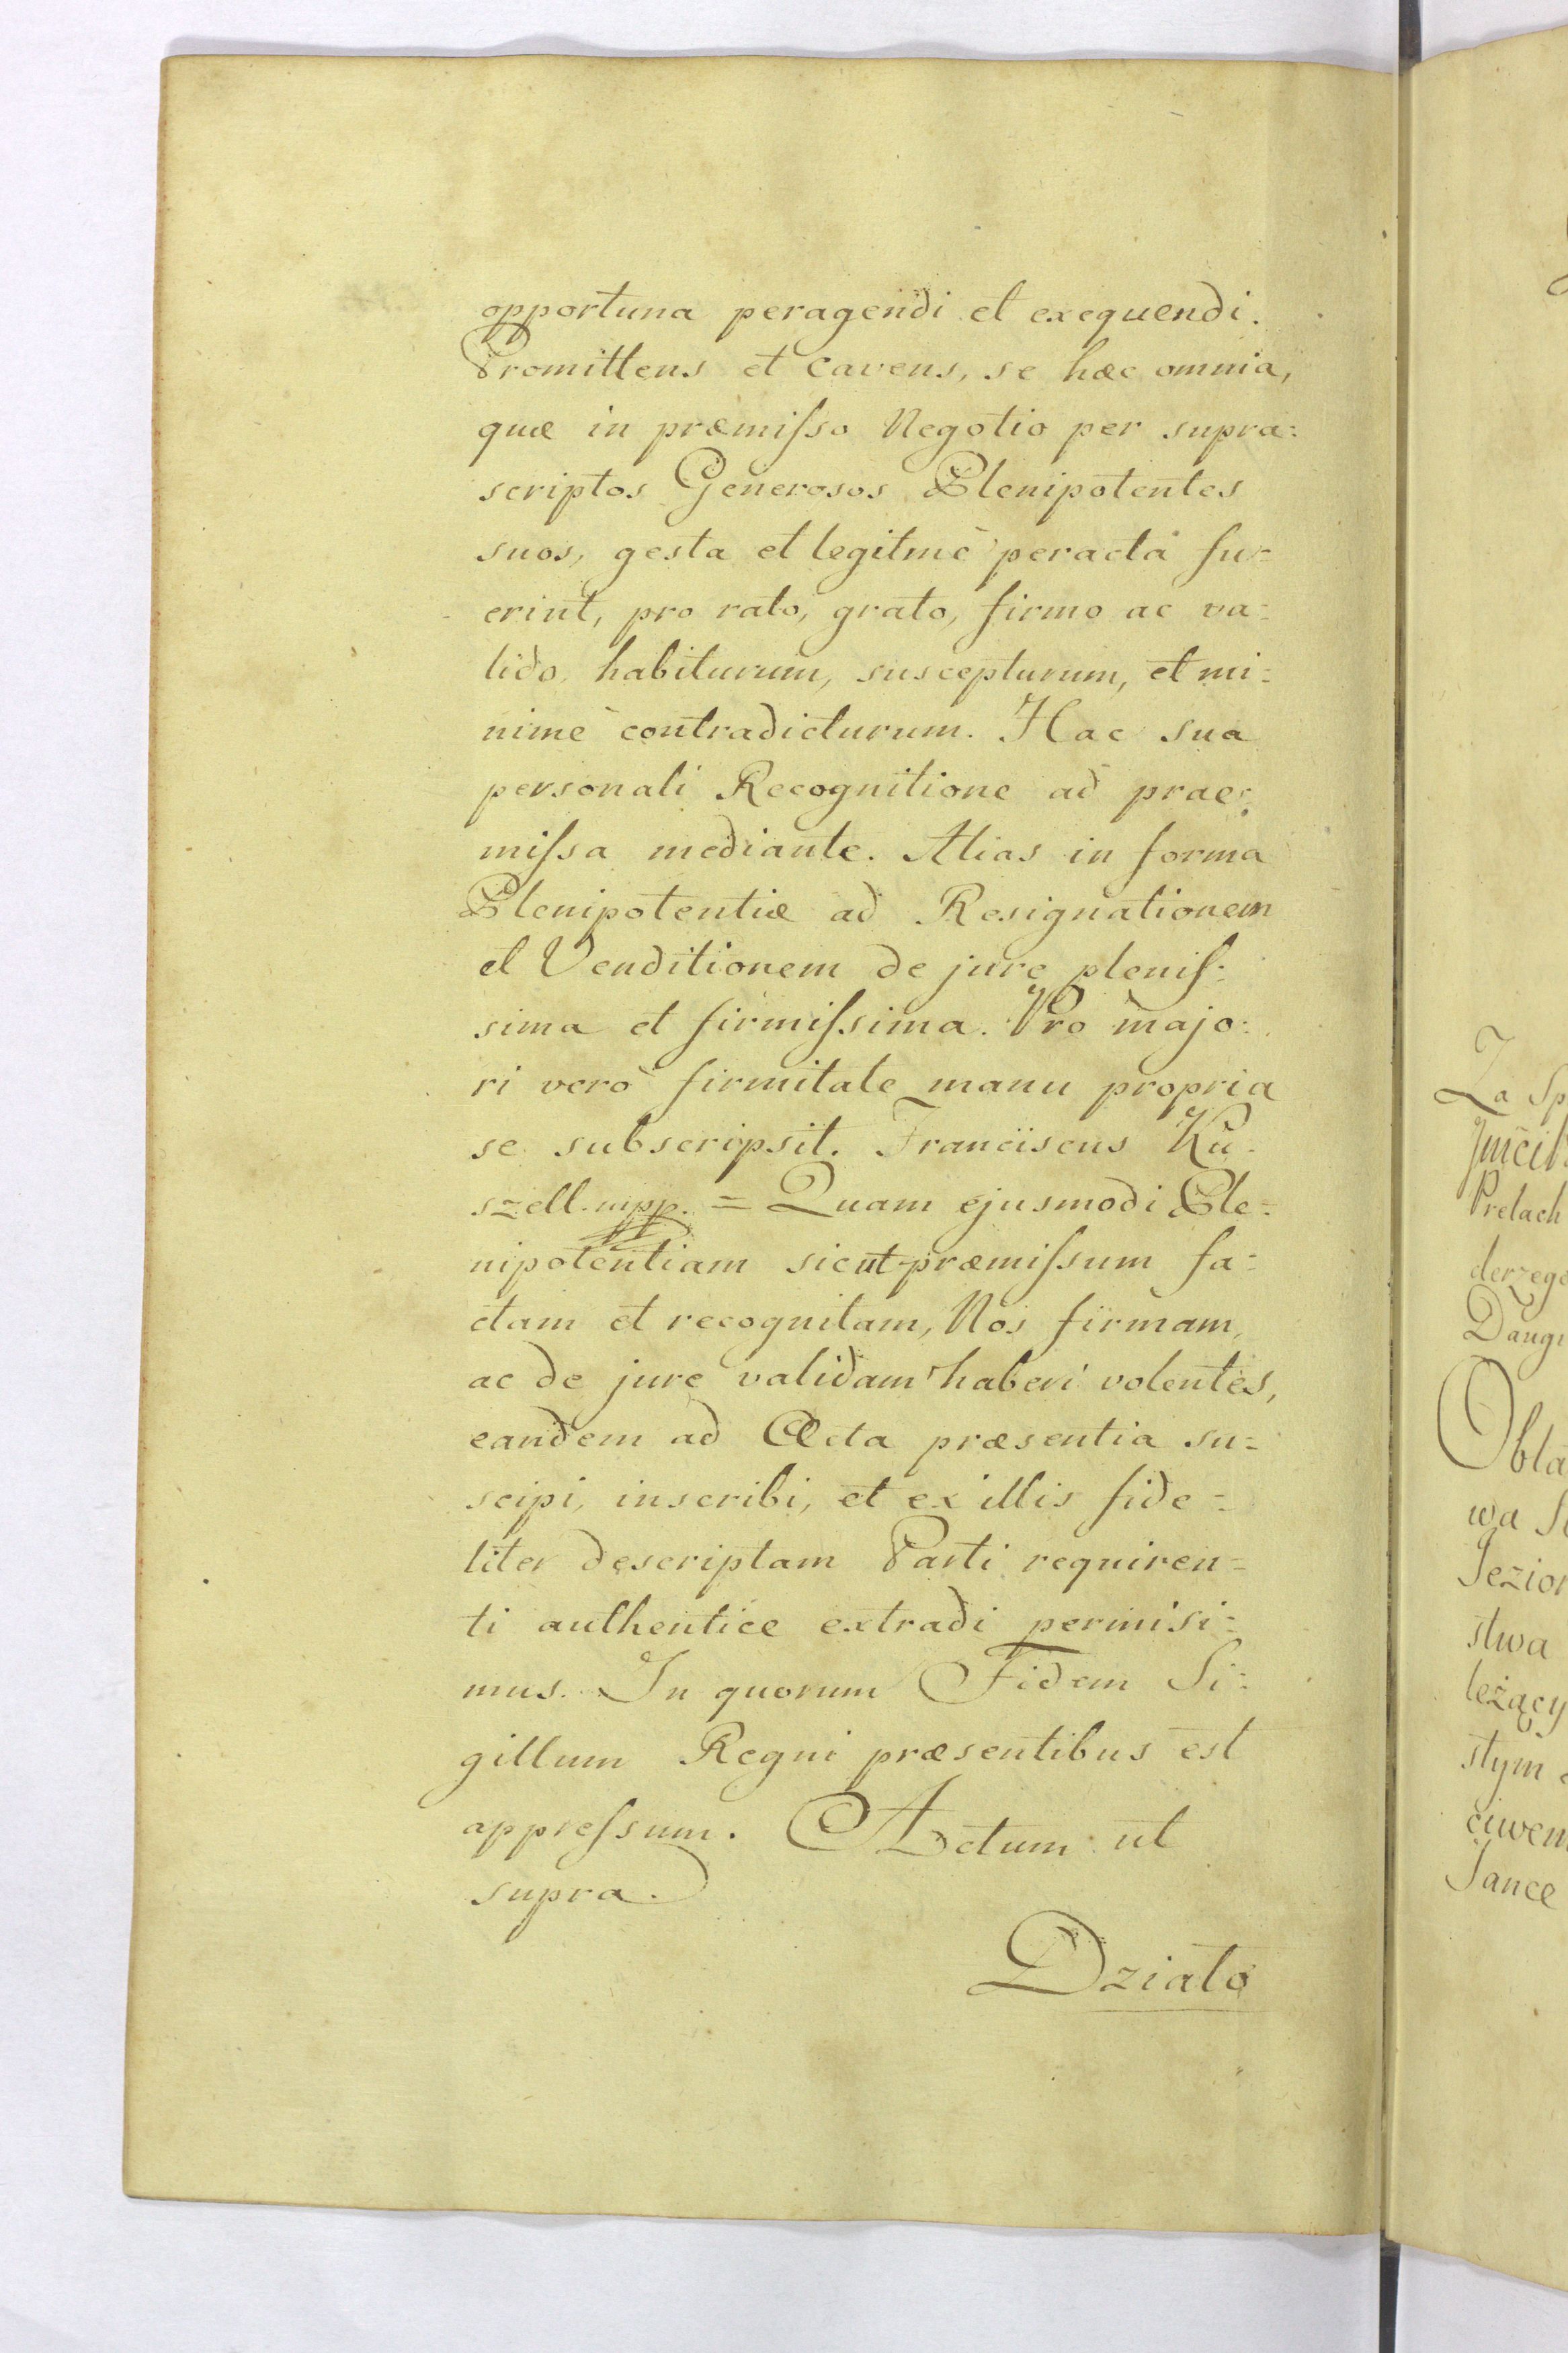 opportuna peragendi et exequendi.
Promittens et cavens, se hæc omnia,
quæ in præmiſso Negotio per supra=
scriptos Generosos Plenipotentes
suos, gesta et legitmè peracta fu=
erint, pro rato, grato, firmo ac va=
lido, habiturum, suscepturum, et mi=
nimè contradicturum. Hac sua
personali Recognitione ad prae=
miſsa mediante. Alias in forma
Plenipotentiæ ad Resignationem
et Venditionem de jure pleniſ=
sima et firmiſsima. Pro majo=
ri verò firmitate manu propria
se subscripsit. Franciscus Ku=
szell. mpp. = Quam ejusmodi Ple=
nipotentiam sicut præmiſsum fa=
ctam et recognitam, Nos firmam,
ac de jure validam haberi volentes,
eandem ad Acta præsentia su=
scipi, inscribi, et ex illis fide=
liter descriptam Parti requiren=
ti authentice extradi permisi=
mus. In quorum Fidem Si=
gillum Regni præsentibus est
appreſsum. Actum ut
supra.
Dziato
Za Sp
Prelach
derzego
Daugi
Obla
wa
Jezior
stwa
leżący
stym
ciwem
Jance